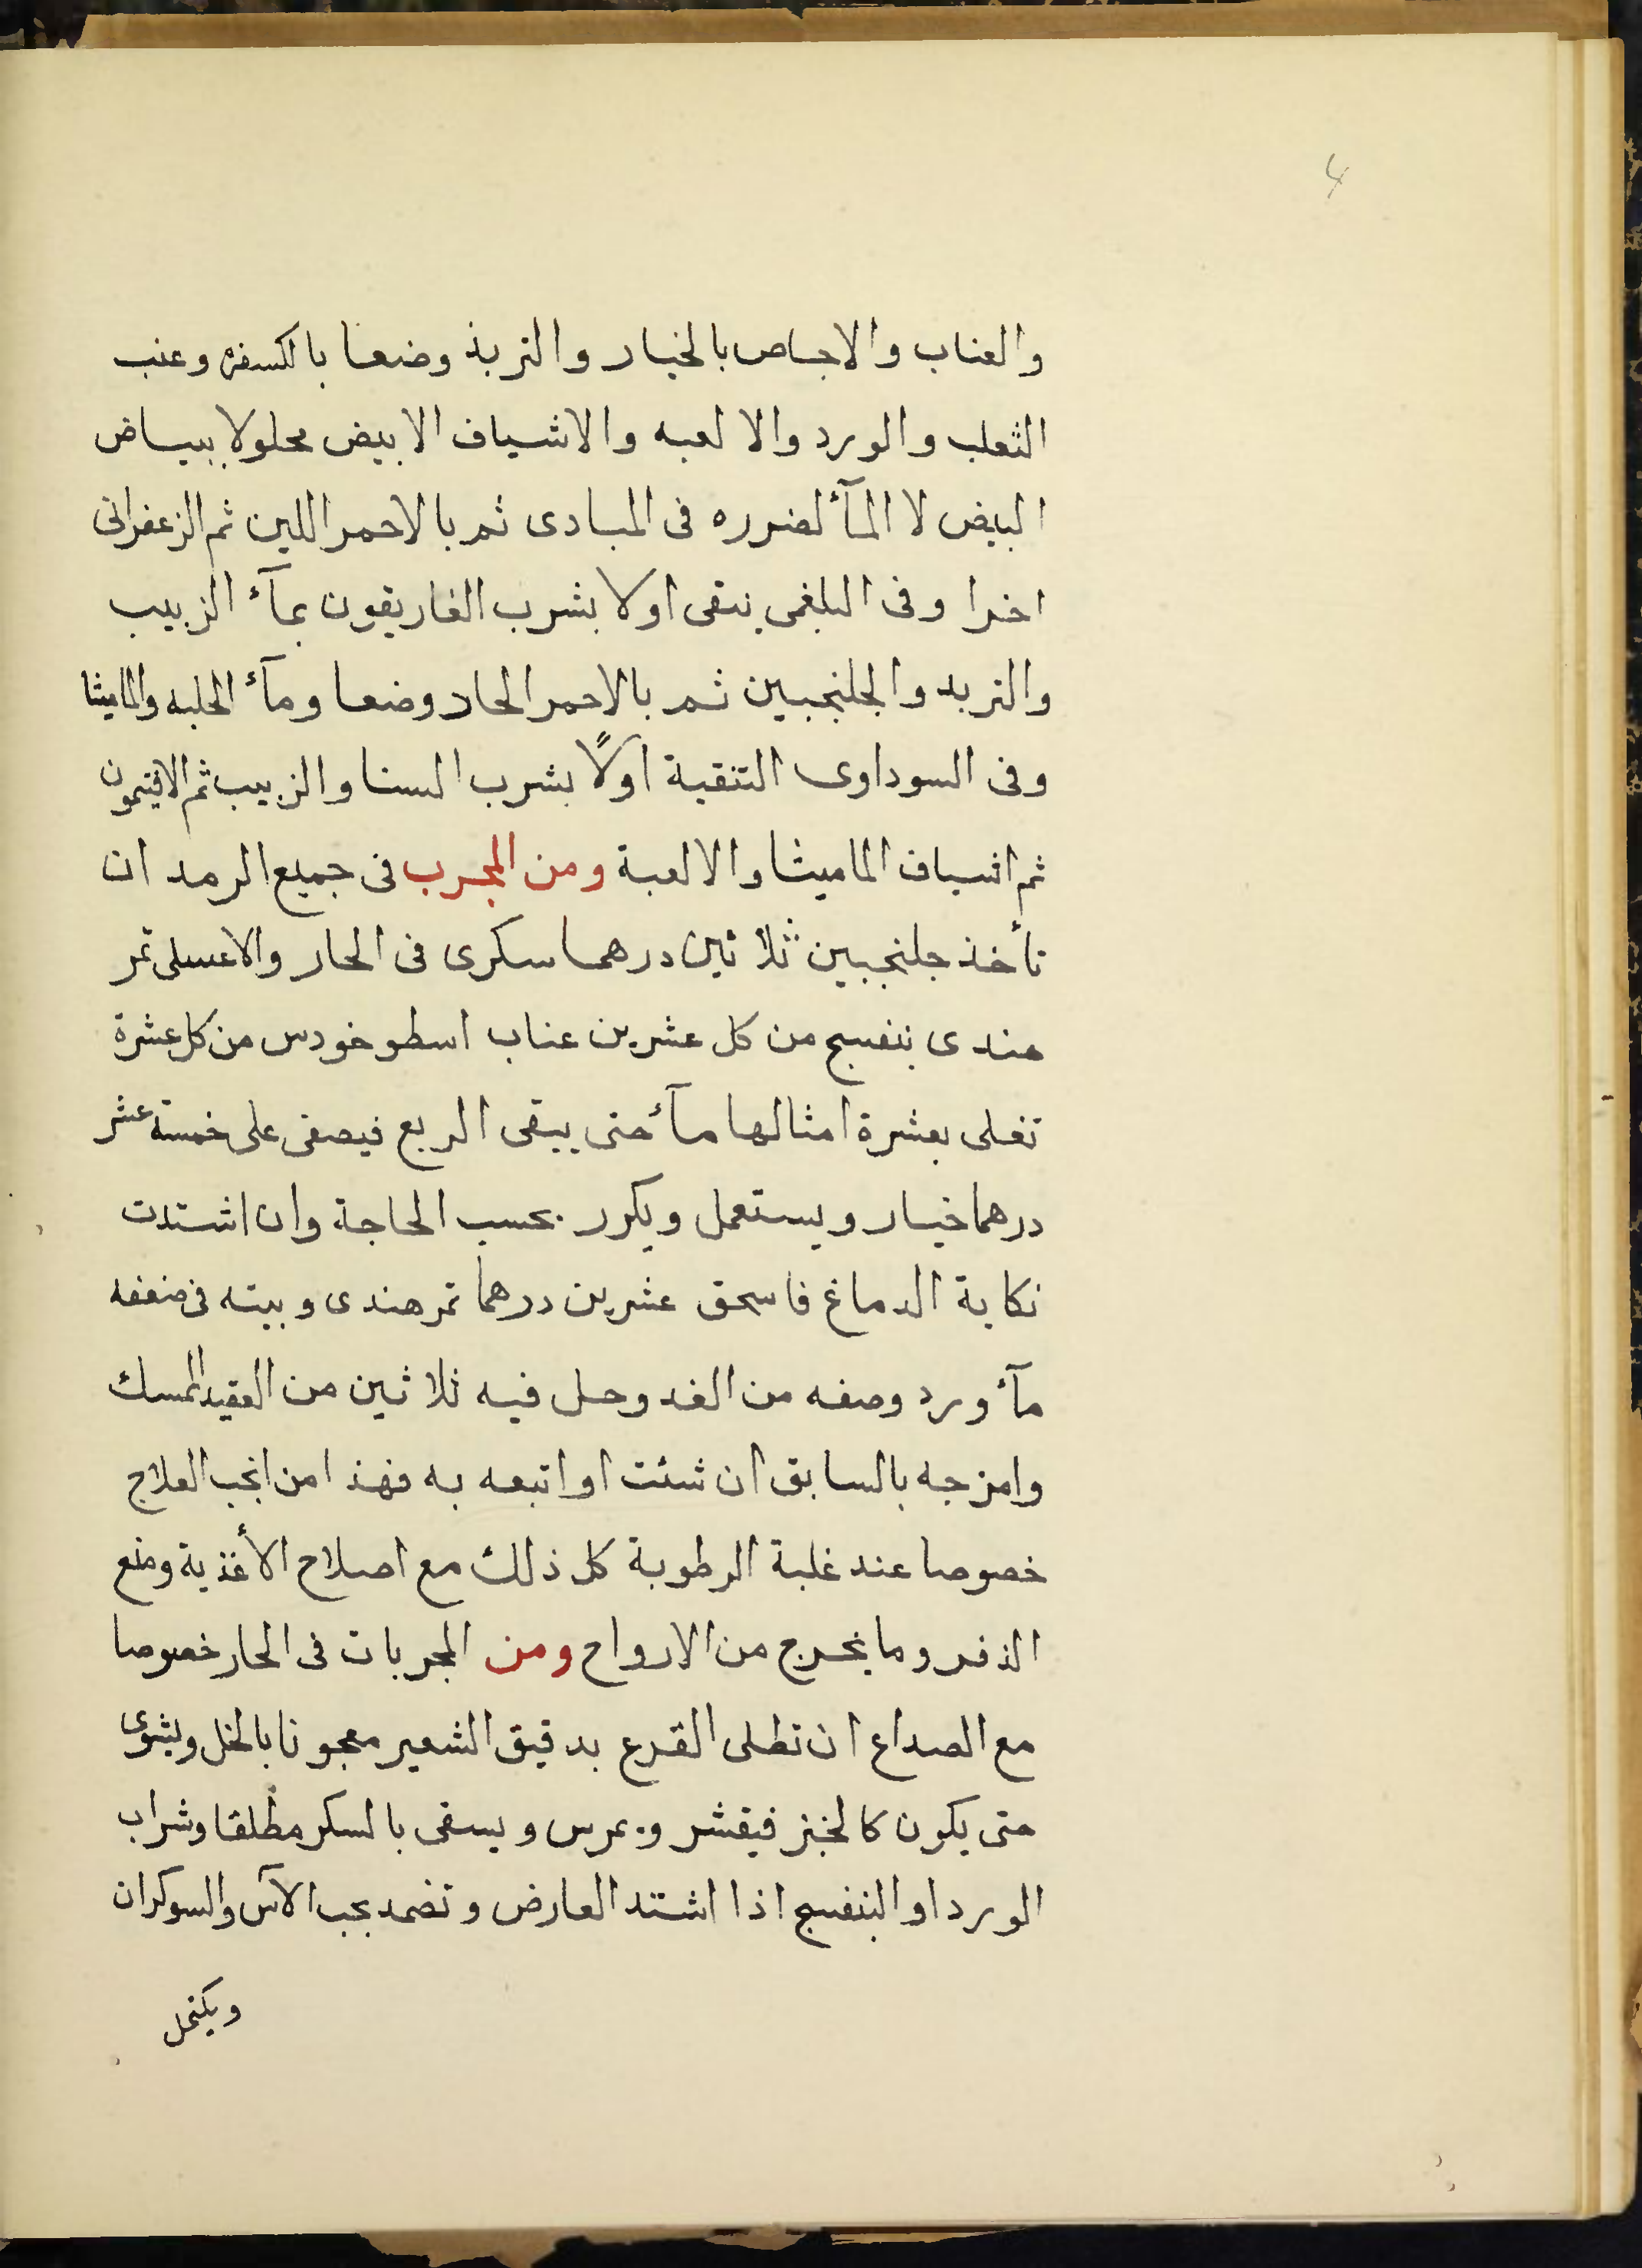 4
والعناب والاجاص بالخيار والتربذ وضعا بالكسفره وعنب
الثعلب والورد والالعبه والاشياف الابيض محلولا ببياض
البيض لا المآء لضرره فى المبادى ثم بالاحمر اللين ثم الزعفرانى
اخرا وفى البلغمى ينقى اولا بشرب الغاريقون بمآء الزبيب
والتربد والجلنجبين ثم بالاحمر الحاد وضعا ومآء الحلبه والماميثا
وفى السوداوى التنقية اولًا بشرب السنا والزبيب ثم الافيتمون
ثم اشياف الماميثا والالعبة ومن المجرب فى جميع الرمد ان
تأخذ جلنجبين ثلاثين درهما سكرى فى الحار والاعسلى تمر
هندى بنفسج من كل عشرين عناب اسطوخودس من كل عشرة
تغلى بعشرة امثالها مآء حتى يبقى الربع فيصفى على خمسة عشر
درهما خيار ويستعمل ويكرر بحسب الحاجة وان اشتدت
نكاية الدماغ فاسحق عشرين درهما تمر هندى وبيته فى ضعفه
مآء ورد وصفه من الغد وحل فيه ثلاثين من العقيد الممسك
وامزجه بالسابق ان شئت او اتبعه به فهذا من انجب العلاج
خصوصا عند غلبة الرطوبة كل ذلك مع اصلاح الأغذية ومنع
الذفر وما يخرج من الارواح ومن المجربات فى الحار خصوصا
مع الصداع ان تطلى القرع بدقيق الشعير معجونا بالخل ويشوى
حتى يكون كالخبز فيقشر ويمرس ويسقى بالسكر مطلقا وشراب
الورد او البنفسج اذا اشتد العارض وتضمد بحب الآس والسوكران
ويكتحل